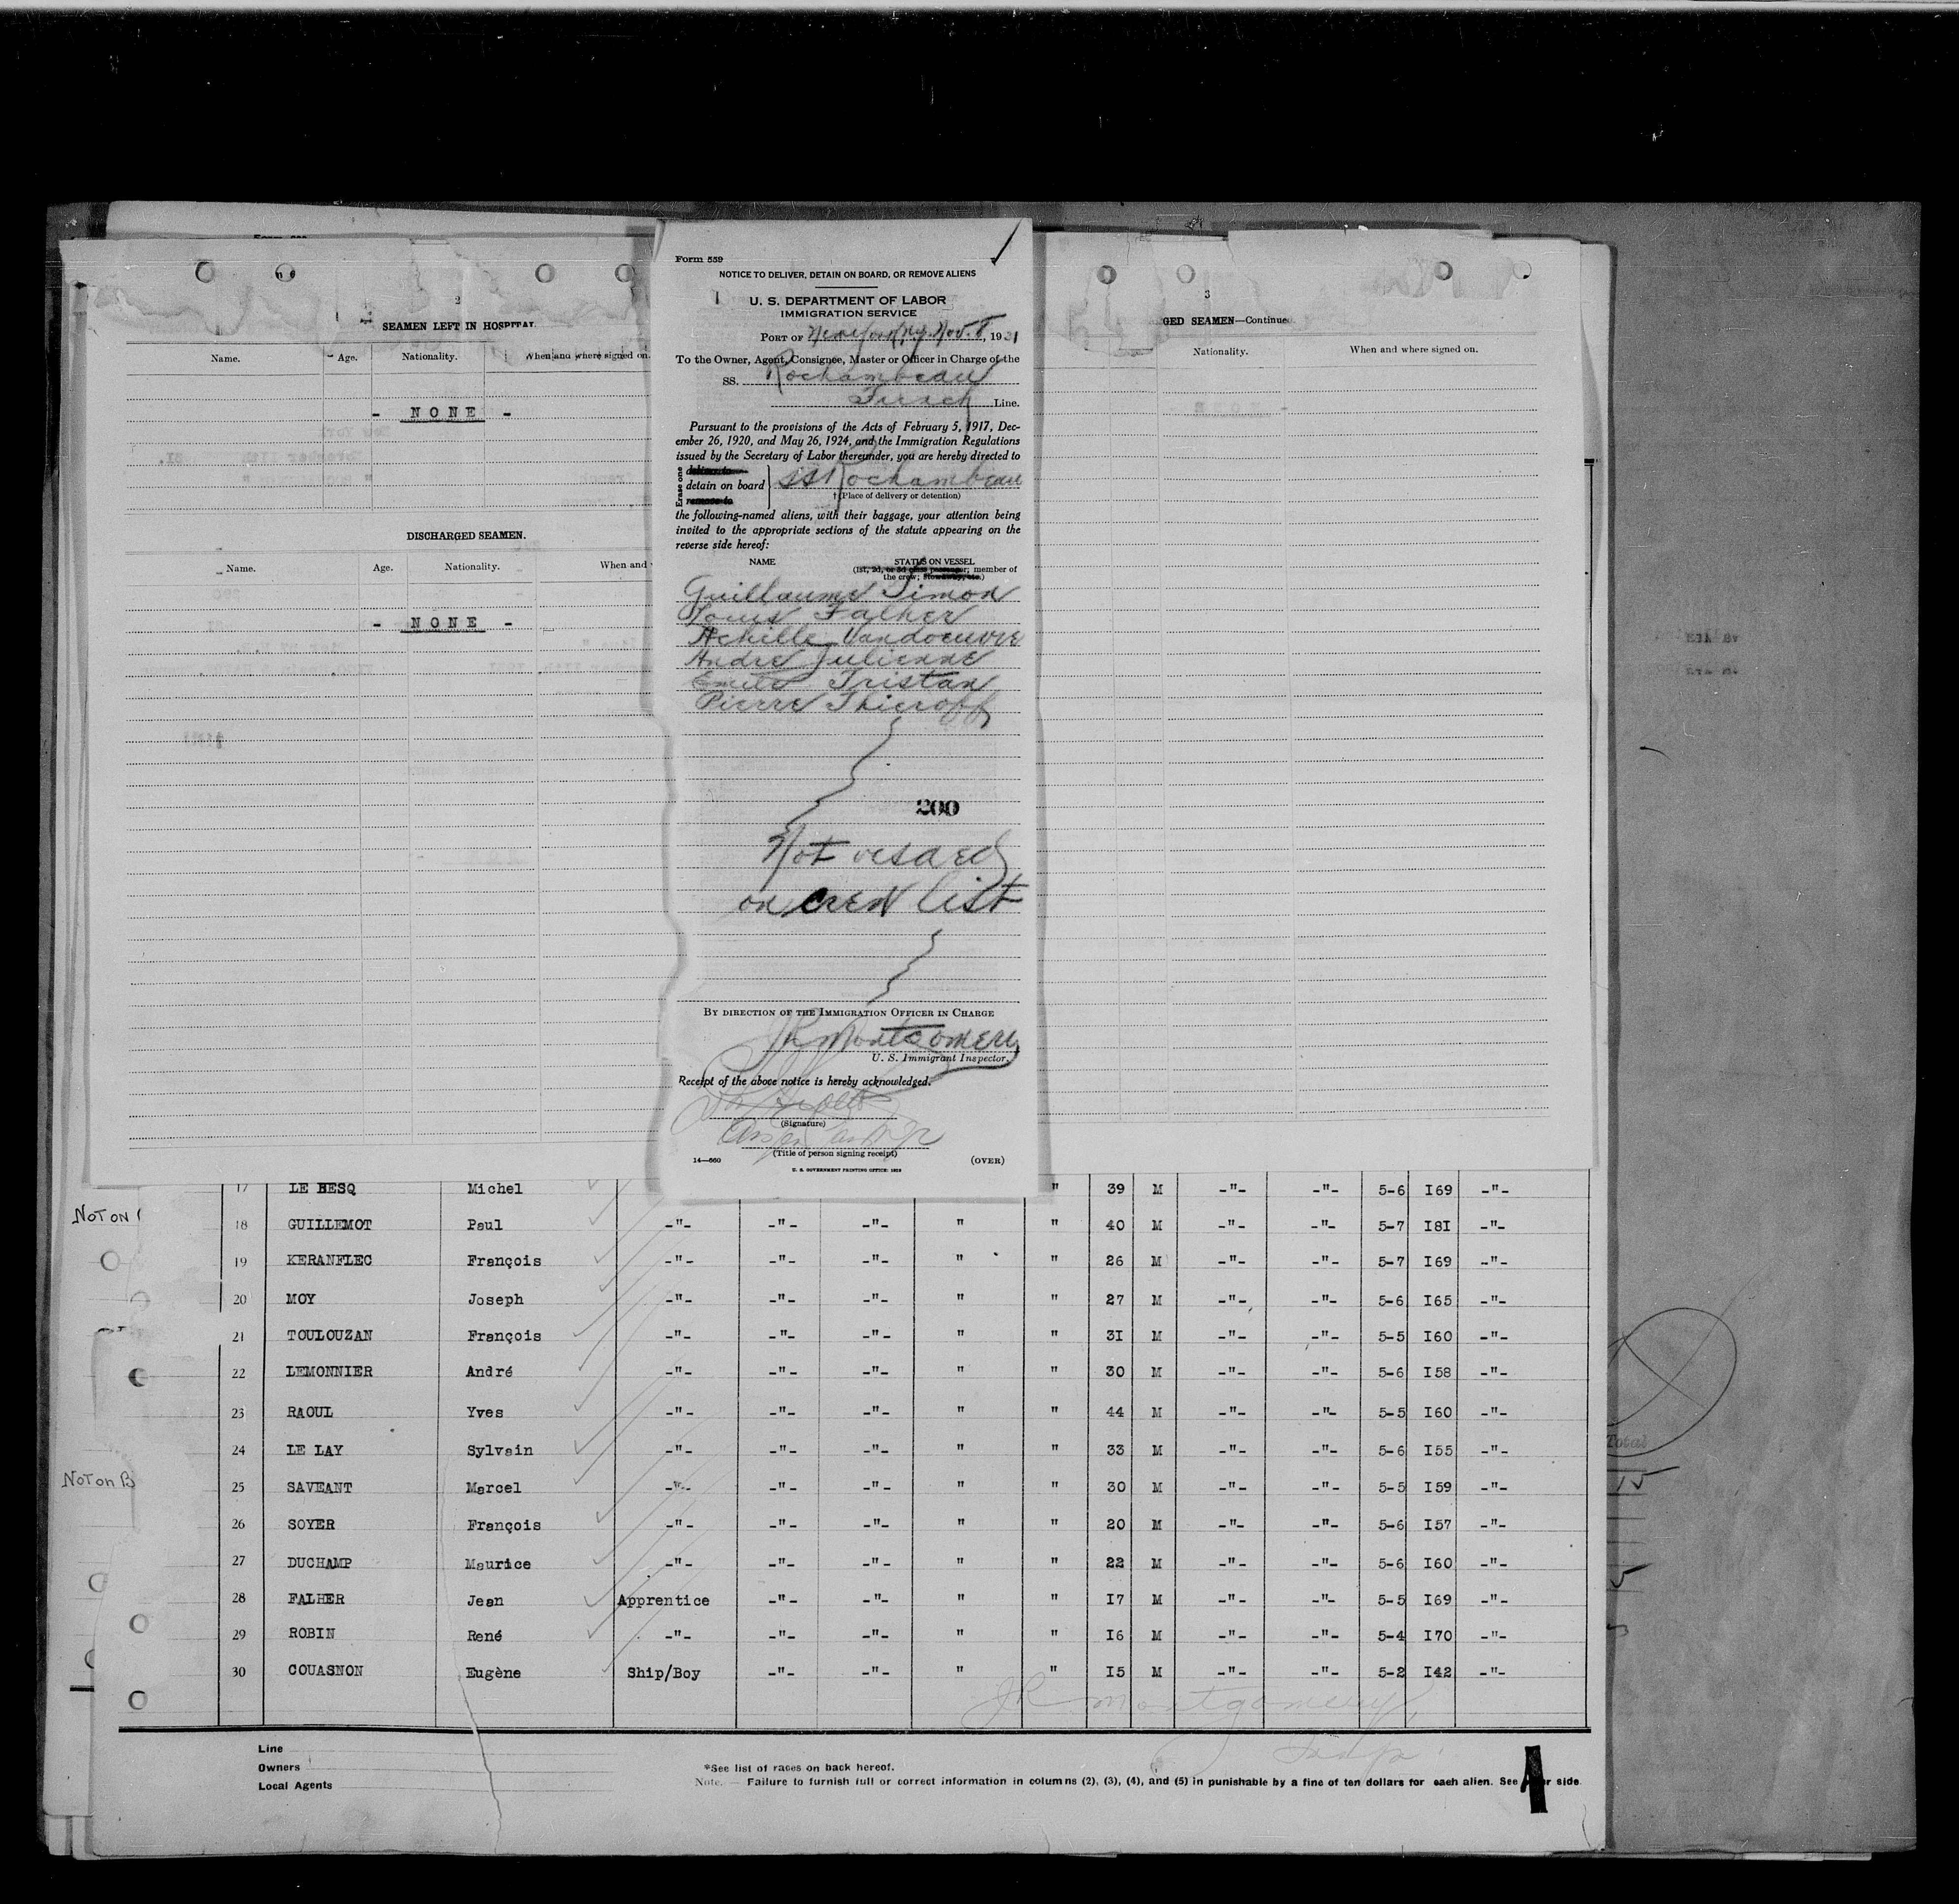 2
SEAMEN LEFT IN HOSPITAL
Name. Age. Nationality. When and where signed on.
- NONE -
DISCHARGED SEAMEN.
Name. Age. Nationality. When and
- NONE -
Form 559
NOTICE TO DELIVER, DETAIN ON BOARD, OR REMOVE ALIENS
U. S. DEPARTMENT OF LABOR
IMMIGRATION SERVICE
PORT OF New York, N.Y. Nov. 8, 1931
To the Owner, Agent, Consignee, Master or Officer in Charge of the
SS. Rochambeau
French Line.
Pursuant to the provisions of the Acts of February 5, 1917, Dec-
ember 26, 1920, and May 26, 1924, and the Immigration Regulations
issued by the Secretary of Labor thereunder, you are hereby directed to
Erase one
deliver to
detain on board SS Rochambeau
remove to
† (Place of delivery or detention)
the following-named aliens, with their baggage, your attention being
invited to the appropriate sections of the statute appearing on the
reverse side hereof:
NAME STATUS ON VESSEL
(1st, 2d, or 3d class passenger; member of
the crew; stowaway, etc.)
Guillaume Simon
Louis Falher
Achille Vandoeuvre
Andre Julienne
Emile Tristan
Pierre Thieroff
200
Not visaed
on crew list
BY DIRECTION OF THE IMMIGRATION OFFICER IN CHARGE
JR Montgomery
U. S. Immigrant Inspector.
Receipt of the above notice is hereby acknowledged.
(Signature)
(Title of person signing receipt)
14—660 (OVER)
U. S. GOVERNMENT PRINTING OFFICE: 1928
3
GED SEAMEN—Continue
Nationality. When and where signed on.
17 LE HESQ Michel " 39 M -"- -"- 5-6 I69 -"-
NOT ON
18 GUILLEMOT Paul -"- -"- -"- " " 40 M -"- -"- 5-7 I8I -"-
19 KERANFLEC François -"- -"- -"- " " 26 M -"- -"- 5-7 I69 -"-
20 MOY Joseph -"- -"- -"- " " 27 M -"- -"- 5-6 I65 -"-
21 TOULOUZAN François -"- -"- -"- " " 3I M -"- -"- 5-5 I60 -"-
22 LEMONNIER André -"- -"- -"- " " 30 M -"- -"- 5-6 I58 -"-
23 RAOUL Yves -"- -"- -"- " " 44 M -"- -"- 5-5 I60 -"-
24 LE LAY Sylvain -"- -"- -"- " " 33 M -"- -"- 5-6 I55 -"-
NOT on B
25 SAVEANT Marcel -"- -"- -"- " " 30 M -"- -"- 5-5 I59 -"-
26 SOYER François -"- -"- -"- " " 20 M -"- -"- 5-6 I57 -"-
27 DUCHAMP Maurice -"- -"- -"- " " 22 M -"- -"- 5-6 I60 -"-
28 FALHER Jean Apprentice -"- -"- " " I7 M -"- -"- 5-5 I69 -"-
29 ROBIN René -"- -"- -"- " " I6 M -"- -"- 5-4 I70 -"-
30 COUASNON Eugène Ship/Boy -"- -"- " " I5 M -"- -"- 5-2 I42 -"-
JR Montgomery
Insp.
Total
15
Line
Owners
Local Agents
*See list of races on back hereof.
Note. — Failure to furnish full or correct information in columns (2), (3), (4), and (5) in punishable by a fine of ten dollars for each alien. See side.